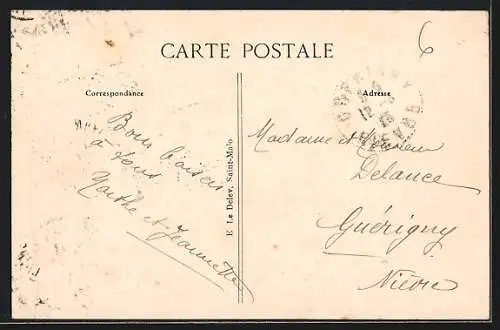 CARTE POSTALE
6
Correspondance
Adresse
Bons baisers
à tous
Marthe et Jeannette
E Le Deley, Saint-Malo
Madame et Monsieur
Delance
Guérigny
Nièvre